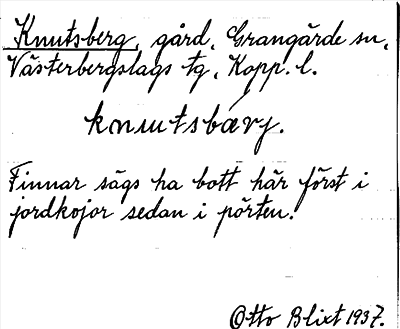 Knutsberg, gård, Grangärde sn,
Västerbergslags tg, Kopp. l.
knutsbærj.
Finnar sägs ha bott här först i
jordkojor sedan i pörten.
Otto Blixt 1937.